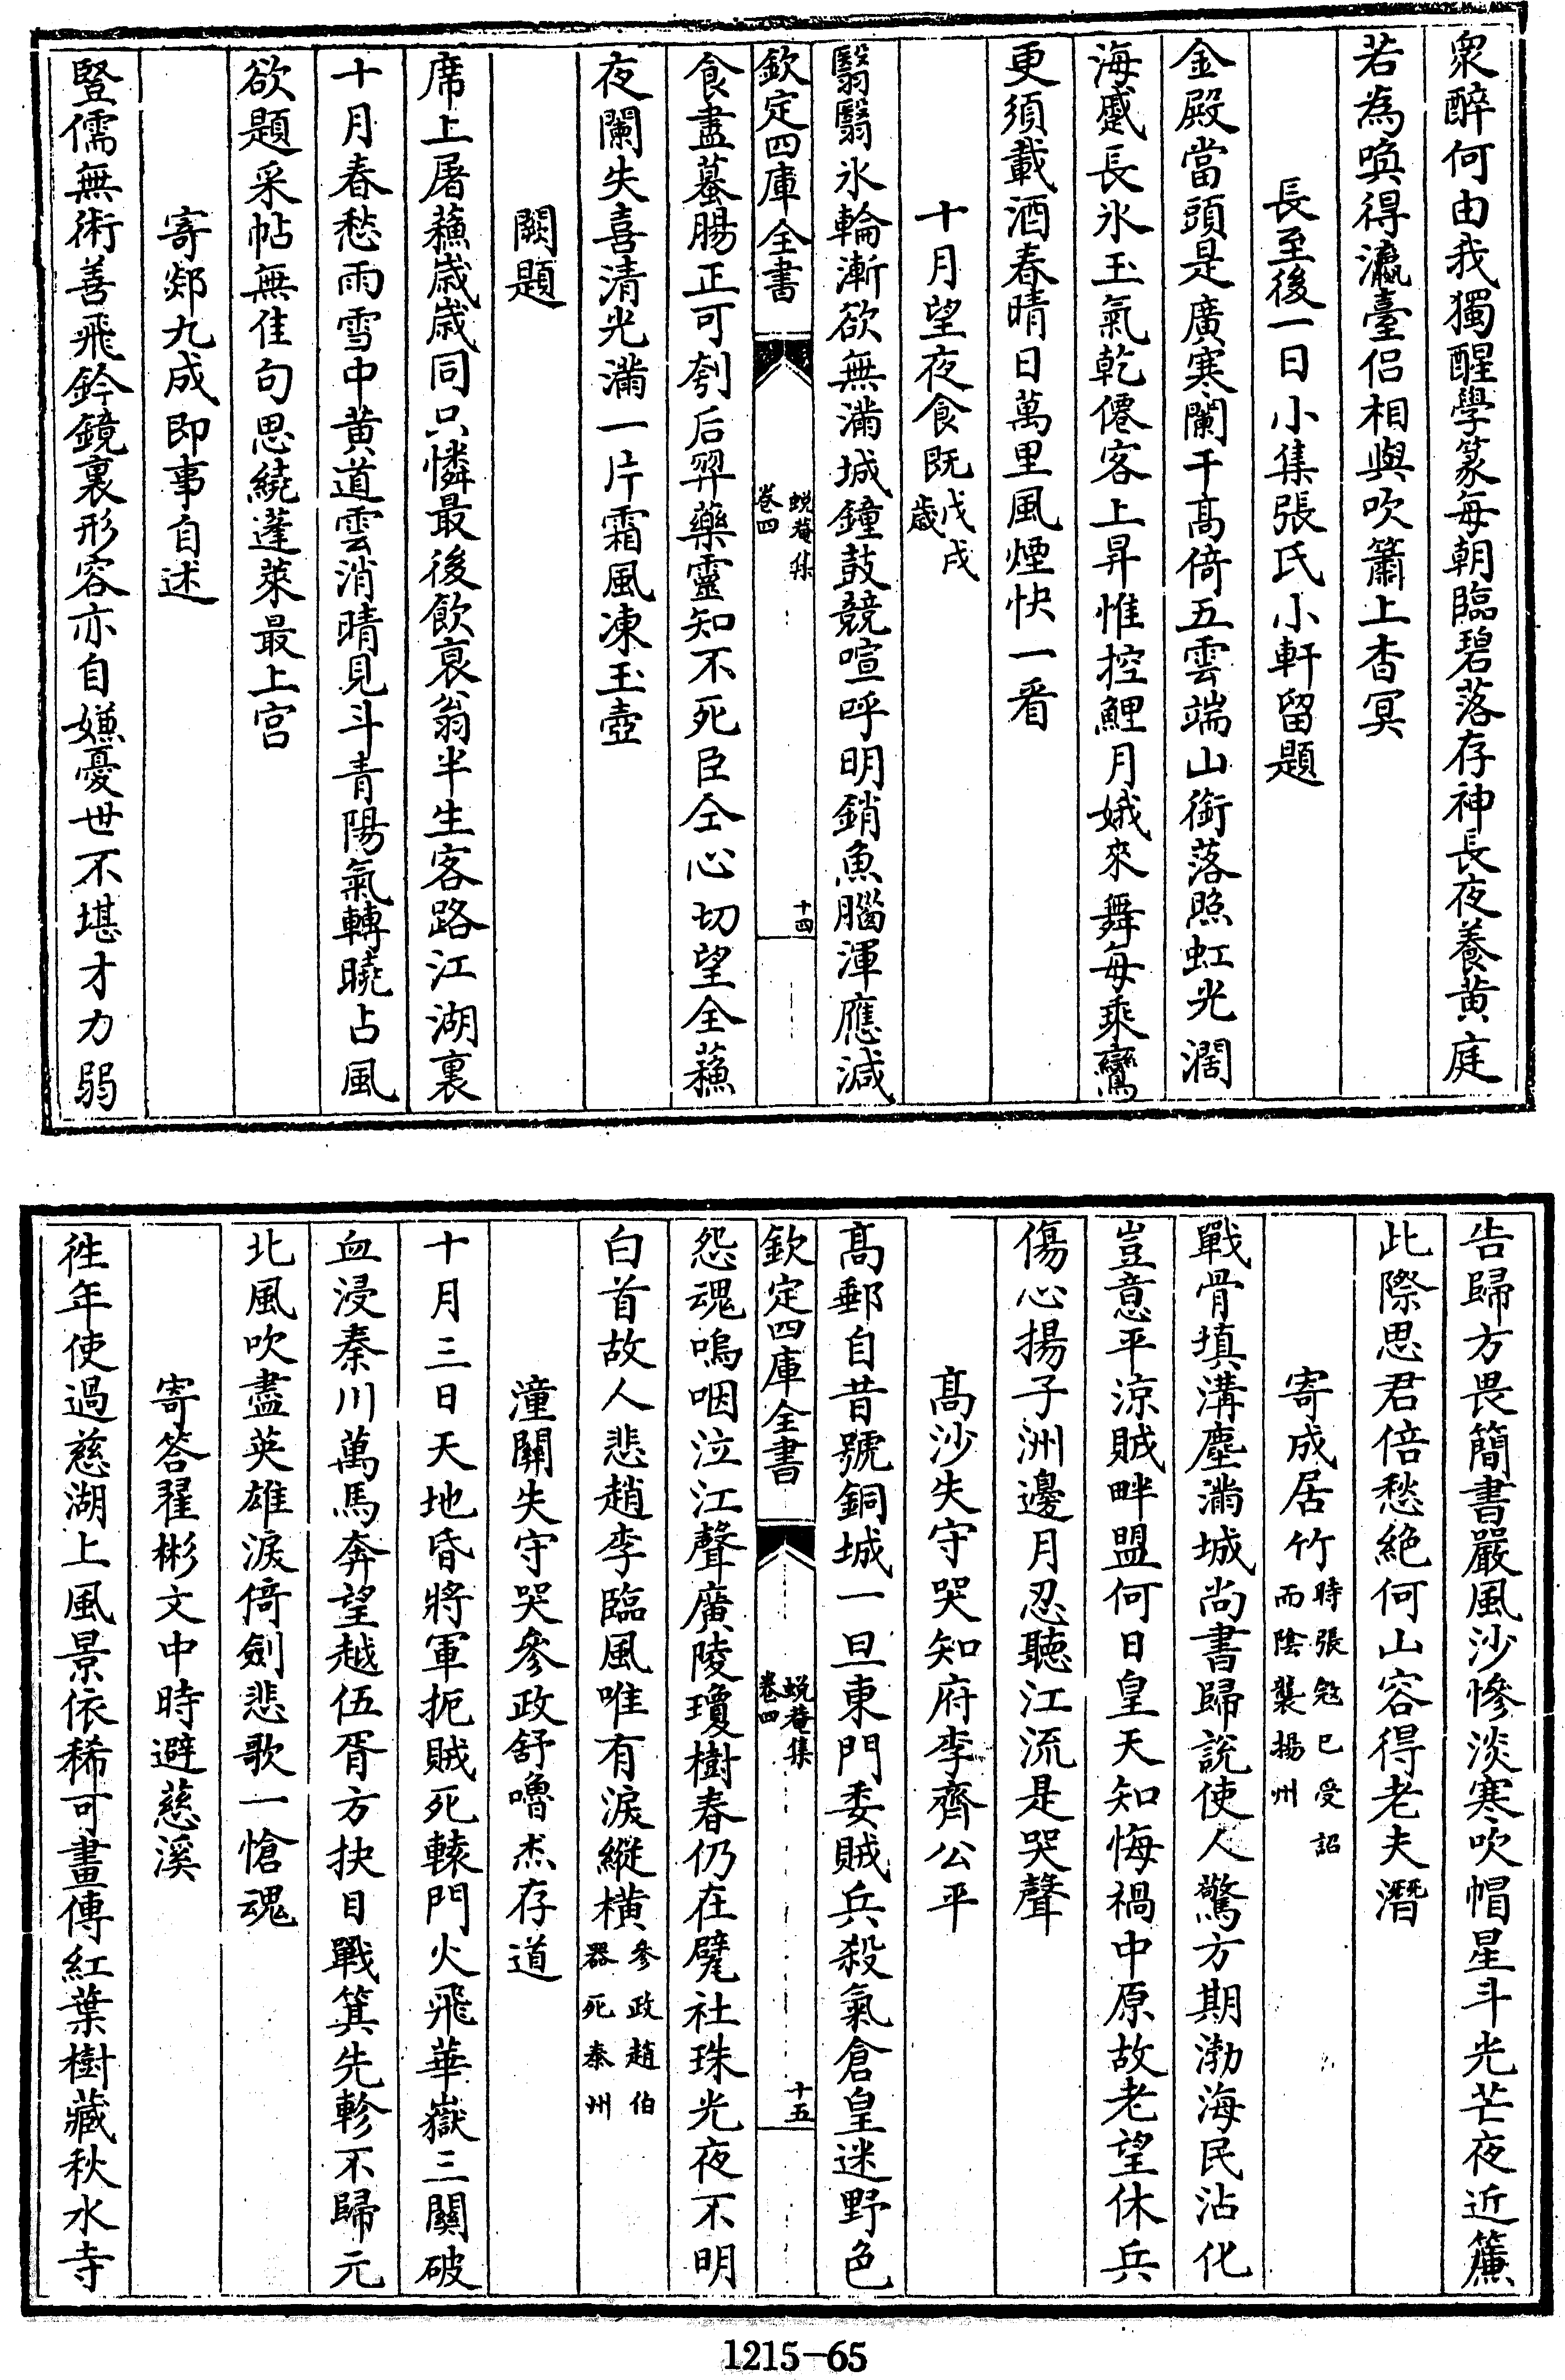 衆醉何由我獨醒學篆每朝臨碧落存神長夜養黄庭
若為喚得瀛臺侣相與吹簫上杳冥
長至後一日小集張氏小軒留題
金殿當頭是廣寒闌干髙倚五雲端山銜落照虹光濶
海蹙長氷玉氣乾僊客上昇惟控鯉月娥來舞每乘鸞
更須載酒春晴日萬里風煙快一看
十月望夜食既戊戌歳
翳翳氷輪漸欲無滿城鐘鼓競喧呼明銷魚腦渾應減
欽定四庫全書
蜕菴集
卷四
十四
食盡蟇腸正可刳后羿藥靈知不死臣仝心切望全蘓
夜闌失喜清光滿一片霜風凍玉壺
闕題
席上屠蘓歳歳同只憐最後飲衰翁半生客路江湖裏
十月春愁雨雪中黄道雲消晴見斗青陽氣轉曉占風
欲題采帖無佳句思繞蓬萊最上宫
寄郯九成即事自述
豎儒無術善飛鈐鏡裏形容亦自嫌憂世不堪才力弱
告歸方畏簡書嚴風沙慘淡寒吹帽星斗光芒夜近簾
此際思君倍愁絶何山容得老夫潛
寄成居竹時張冦已受詔而陰襲揚州
戰骨填溝塵滿城尚書歸說使人驚方期渤海民沾化
豈意平涼賊畔盟何日皇天知悔禍中原故老望休兵
傷心揚子洲邊月忍聽江流是哭聲
髙沙失守哭知府李齊公平
髙郵自昔號銅城一旦東門委賊兵殺氣倉皇迷野色
欽定四庫全書
蜕菴集
卷四
十五
怨魂嗚咽泣江聲廣陵瓊樹春仍在甓社珠光夜不明
白首故人悲趙李臨風唯有淚縱横參政趙伯器死泰州
潼關失守哭參政舒嚕杰存道
十月三日天地昏將軍扼賊死轅門火飛華嶽三關破
血浸秦川萬馬奔望越伍胥方抉目戰箕先軫不歸元
北風吹盡英雄淚倚劍悲歌一愴魂
寄答翟彬文中時避慈溪
徃年使過慈湖上風景依稀可畫傳紅葉樹藏秋水寺
1215-65